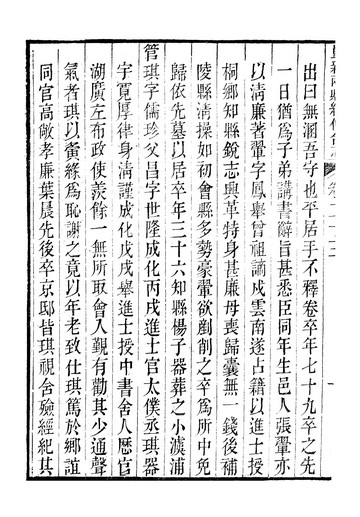 出曰無溷吾守也平居手不釋卷卒年七十九卒之先
一日猶爲子弟講書辭旨甚悉臣同年生邑人張鞏亦
以清廉著鞏字鳳舉曾祖謫戍雲南遂占籍以進士授
桐鄉知縣銳志興革特身甚廉母喪歸囊無一錢後補
陵縣清操如初會縣多勢豪鞏欲劃削之卒爲所中免
歸依先墓以居卒年三十六知縣楊子器葬之小澞浦
管琪字儒珍父昌字世隆成化丙戌進士官太僕丞琪器
宇寬厚律身清謹成化戊戌舉進士授中書舍人歷官
湖廣左布政使羨餘一無所取會入覲有勸其少通聲
氣者琪以夤緣爲恥謝之竟以年老致仕琪篤於鄉誼
同官高敞孝廉葉晨先後卒京邸皆琪視含殮經紀其